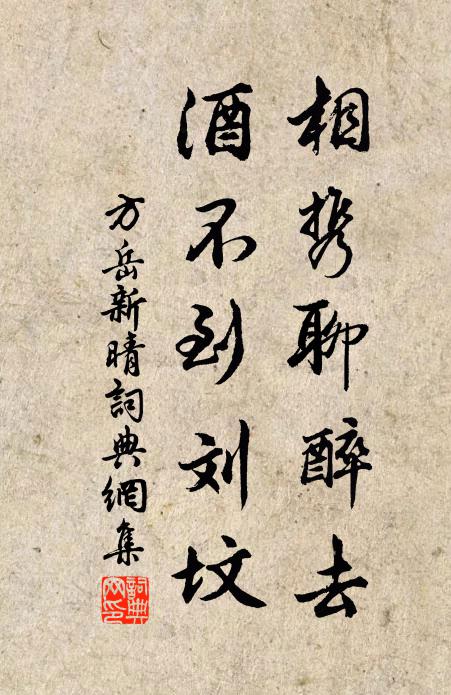 相携聊醉去
酒不到刘坟
方岳新晴詞典網集
詞典网印